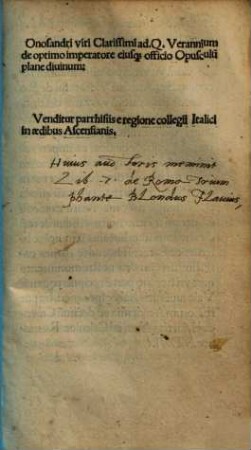 Onosandri viri Clarissimi ad.Q. Verannium
de optimo imperatore eiusq; officio Opusculũ
plane diuinum:
Venditur parrhisiis e regione collegii Italici
in ædibus Ascensianis.
Huius autoris meminit
Lib. 7. de Roma Trium
phante Blondus Flavius,